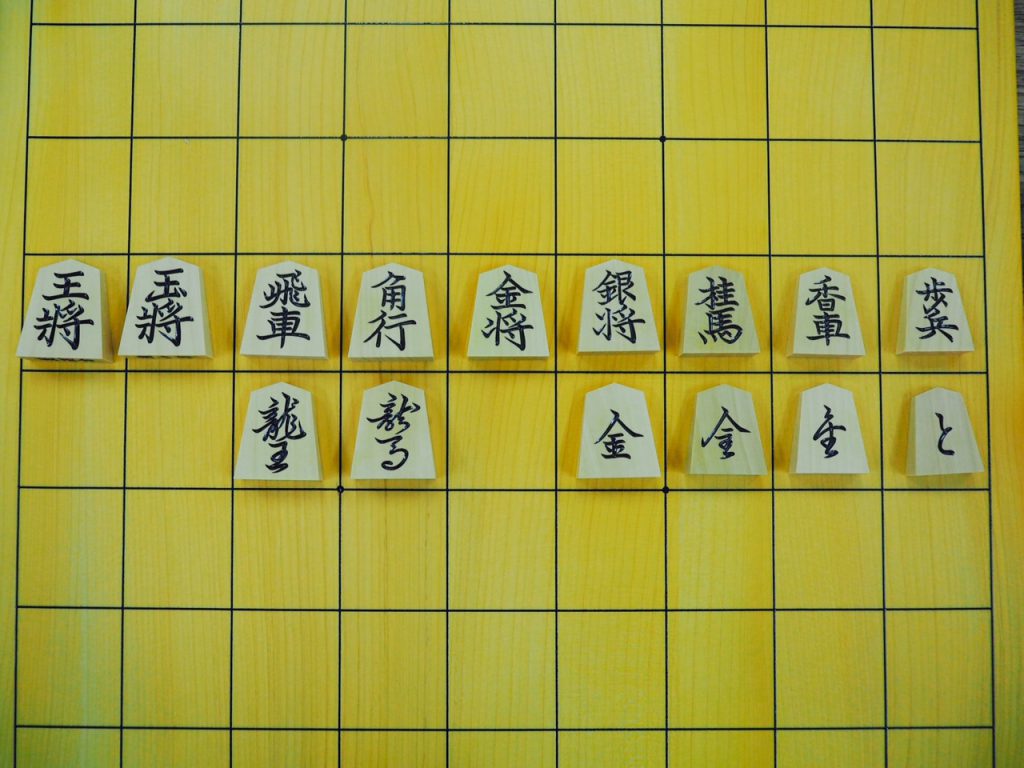 王將 玉將 飛車 角行 金将 銀将 桂馬 香車 歩兵
龍王 龍馬 金 金 金 と